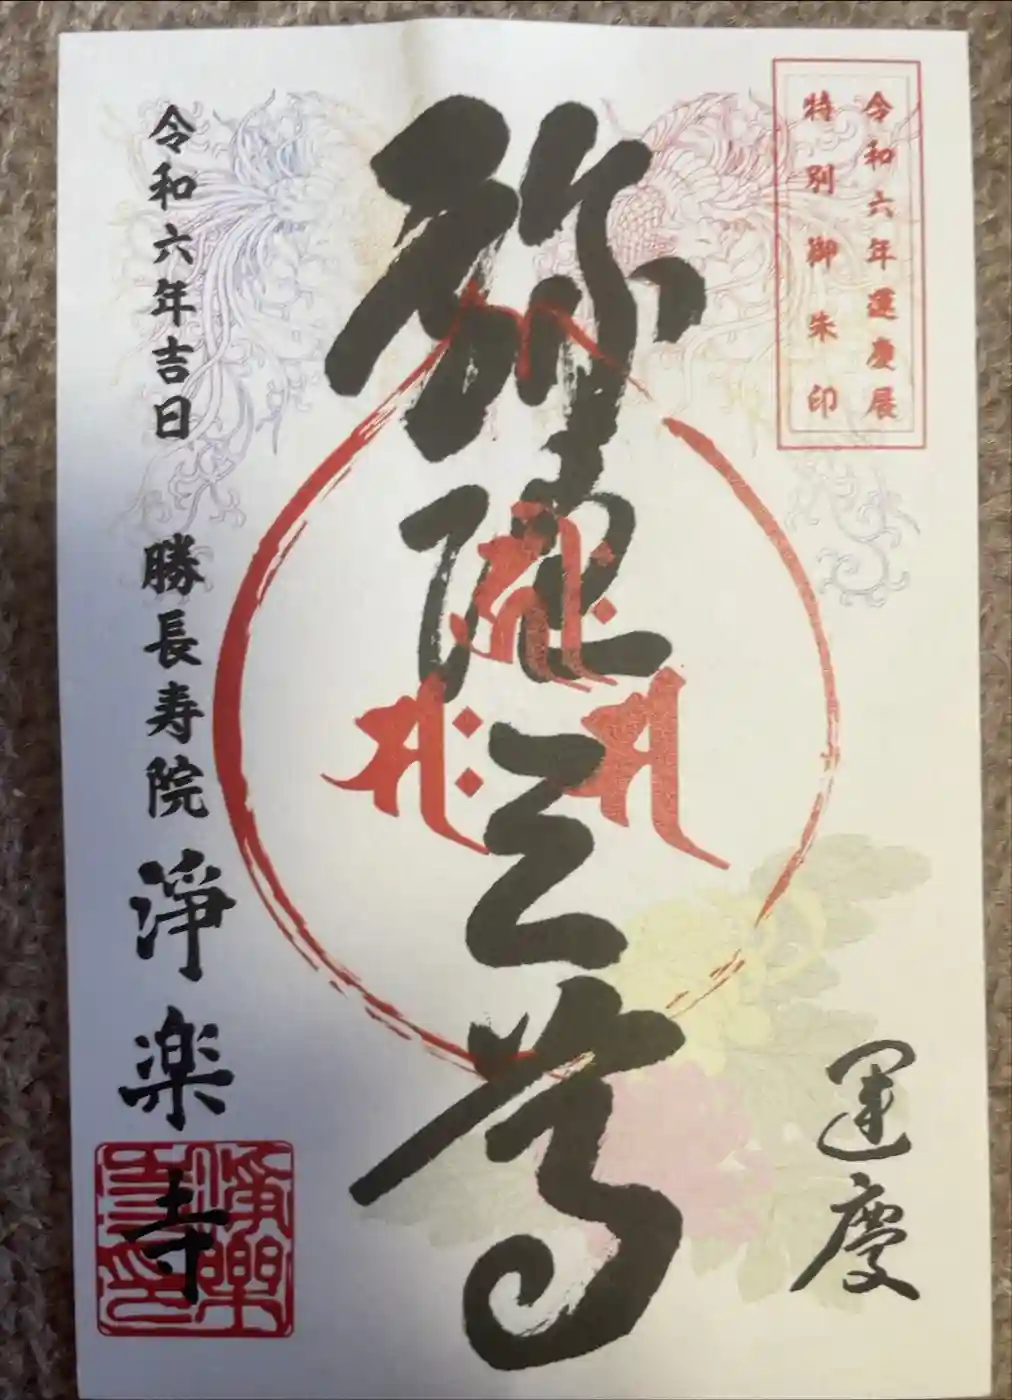 令和六年運慶展
特別御朱印
運慶
弥陀三尊
令和六年吉日 勝長寿院 淨楽寺
淨樂
寺印